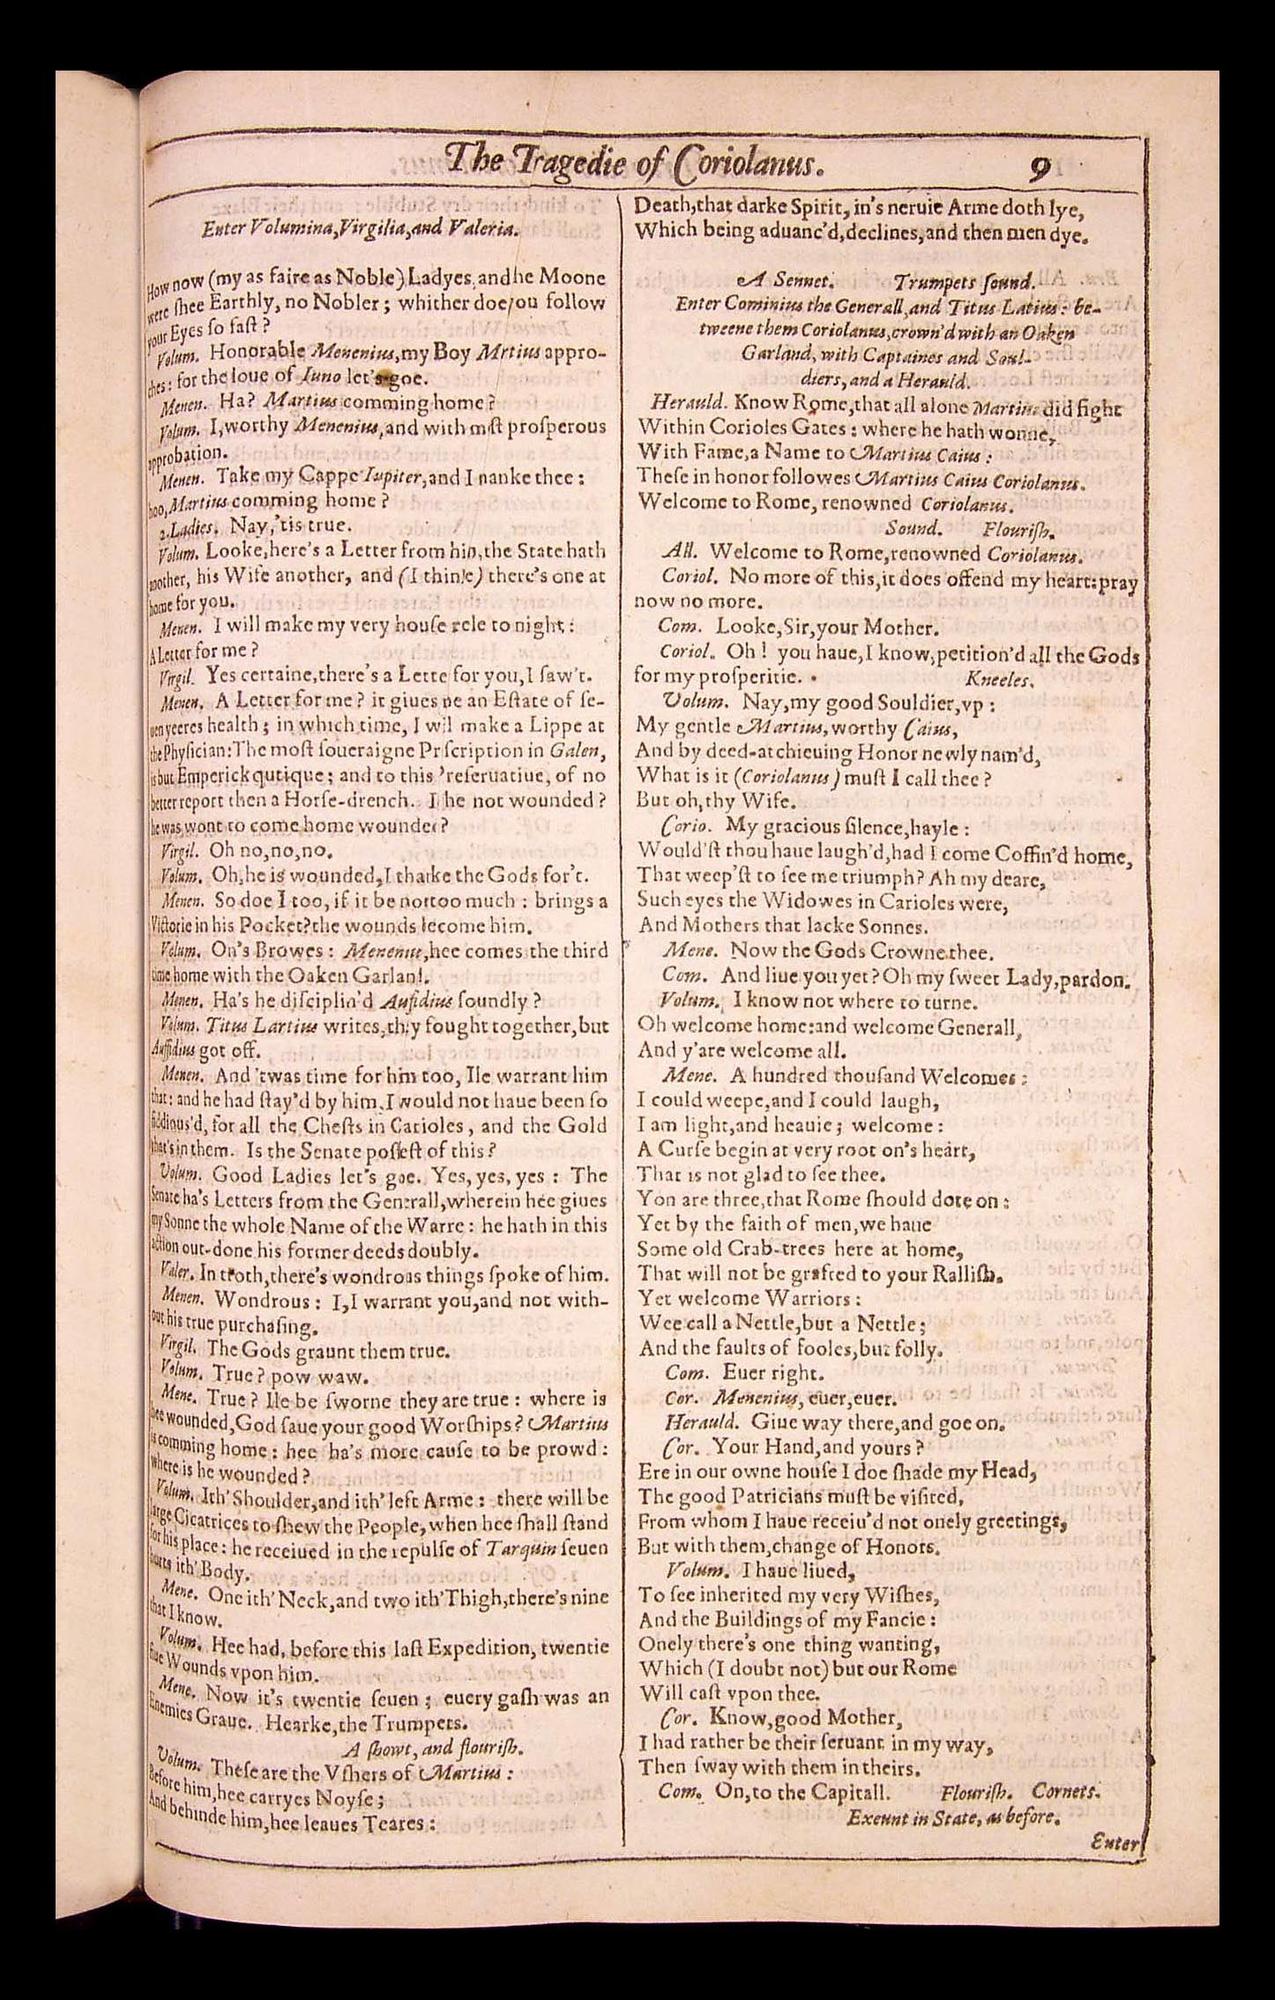 The Tragedie of Coriolanus. 9
Enter Volumina, Virgilia, and Valeria.
How now (my as faire as Noble) Ladyes, and he Moone
were shee Earthly, no Nobler; whither doe you follow
your Eyes so fast?
Volum. Honorable Menenius, my Boy Mrtius appro-
ches: for the loue of Iuno let's goe.
Menen. Ha? Martius comming home?
Volum. I, worthy Menenius, and with mst prosperous
approbation.
Menen. Take my Cappe Iupiter, and I hanke thee:
hoo, Martius comming home?
2. Ladies. Nay, 'tis true.
Volum. Looke, here's a Letter from him, the State hath
another, his Wife another, and (I thinke) there's one at
home for you.
Menen. I will make my very house rele to night:
A Letter for me?
Virgil. Yes certaine, there's a Lette for you, I saw't.
Menen. A Letter for me? it giues ne an Estate of se-
uen yeeres health; in which time, I wil make a Lippe at
the Physician: The most soueraigne Prscription in Galen,
is but Emperickqutique; and to this 'reseruatiue, of no
better report then a Horse-drench. I he not wounded?
he was wont to come home wounded?
Virgil. Oh no, no, no.
Volum. Oh, he is wounded, I thanke the Gods for't.
Menen. So doe I too, if it be not too much: brings a
Victorie in his Pocket? the wounds become him.
Volum. On's Browes: Menenius, hee comes the third
time home with the Oaken Garland.
Menen. Ha's he disciplin'd Aufidius soundly?
Volum. Titus Lartius writes, they fought together, but
Auffidius got off.
Menen. And 'twas time for him too, Ile warrant him
that: and he had stay'd by him, I would not haue been so
fiddious'd, for all the Chests in Carioles, and the Gold
that's in them. Is the Senate possest of this?
Volum. Good Ladies let's goe. Yes, yes, yes: The
Senate ha's Letters from the Generall, wherein hee giues
my Sonne the whole Name of the Warre: he hath in this
action out-done his former deeds doubly.
Valer. In troth, there's wondrous things spoke of him.
Menen. Wondrous: I, I warrant you, and not with-
out his true purchasing.
Virgil. The Gods graunt them true.
Volum. True? pow waw.
Mene. True? Ile be sworne they are true: where is
hee wounded, God saue your good Worships? Martius
is comming home: hee ha's more cause to be prowd:
where is he wounded?
Volum. Ith' Shoulder, and ith' left Arme: there will be
large Cicatrices to shew the People, when hee shall stand
for his place: he receiued in the repulse of Tarquin seuen
hurts ith' Body.
Mene. One ith' Neck, and two ith' Thigh, there's nine
that I know.
Volum. Hee had, before this last Expedition, twentie
fiue Wounds vpon him.
Mene. Now it's twentie seuen; euery gash was an
Enemies Graue. Hearke, the Trumpets.
A showt, and flourish.
Volum. These are the Vshers of Martius:
Before him, hee carryes Noyse;
And behinde him, hee leaues Teares:
Death, that darke Spirit, in's neruie Arme doth lye,
Which being aduanc'd, declines, and then men dye.
A Sennet. Trumpets sound.
Enter Cominius the Generall, and Titus Latius: be-
tweene them Coriolanus, crown'd with an Oaken
Garland, with Captaines and Soul-
diers, and a Herauld.
Herauld. Know Rome, that all alone Martius did fight
Within Corioles Gates: where he hath wonne,
With Fame, a Name to Martius Caius:
These in honor followes Martius Caius Coriolanus.
Welcome to Rome, renowned Coriolanus.
Sound. Flourish.
All. Welcome to Rome, renowned Coriolanus.
Coriol. No more of this, it does offend my heart: pray
now no more.
Com. Looke, Sir, your Mother.
Coriol. Oh! you haue, I know, petition'd all the Gods
for my prosperitie. Kneeles.
Volum. Nay, my good Souldier, vp:
My gentle Martius, worthy Caius,
And by deed-atchieuing Honor newly nam'd,
What is it (Coriolanus) must I call thee?
But oh, thy Wife.
Corio. My gracious silence, hayle:
Would'st thou haue laugh'd, had I come Coffin'd home,
That weep'st to see me triumph? Ah my deare,
Such eyes the Widowes in Carioles were,
And Mothers that lacke Sonnes.
Mene. Now the Gods Crowne thee.
Com. And liue you yet? Oh my sweet Lady, pardon.
Volum. I know not where to turne.
Oh welcome home: and welcome Generall,
And y'are welcome all.
Mene. A hundred thousand Welcomes:
I could weepe, and I could laugh,
I am light, and heauie; welcome:
A Curse begin at very root on's heart,
That is not glad to see thee.
Yon are three, that Rome should dote on:
Yet by the faith of men, we haue
Some old Crab-trees here at home,
That will not be grafted to your Rallish.
Yet welcome Warriors:
Wee call a Nettle, but a Nettle;
And the faults of fooles, but folly.
Com. Euer right.
Cor. Menenius, euer, euer.
Herauld. Giue way there, and goe on.
Cor. Your Hand, and yours?
Ere in our owne house I doe shade my Head,
The good Patricians must be visited,
From whom I haue receiu'd not onely greetings,
But with them, change of Honors.
Volum. I haue liued,
To see inherited my very Wishes,
And the Buildings of my Fancie:
Onely there's one thing wanting,
Which (I doubt not) but our Rome
Will cast vpon thee.
Cor. Know, good Mother,
I had rather be their seruant in my way,
Then sway with them in theirs.
Com. On, to the Capitall. Flourish. Cornets.
Exeunt in State, as before.
Enter